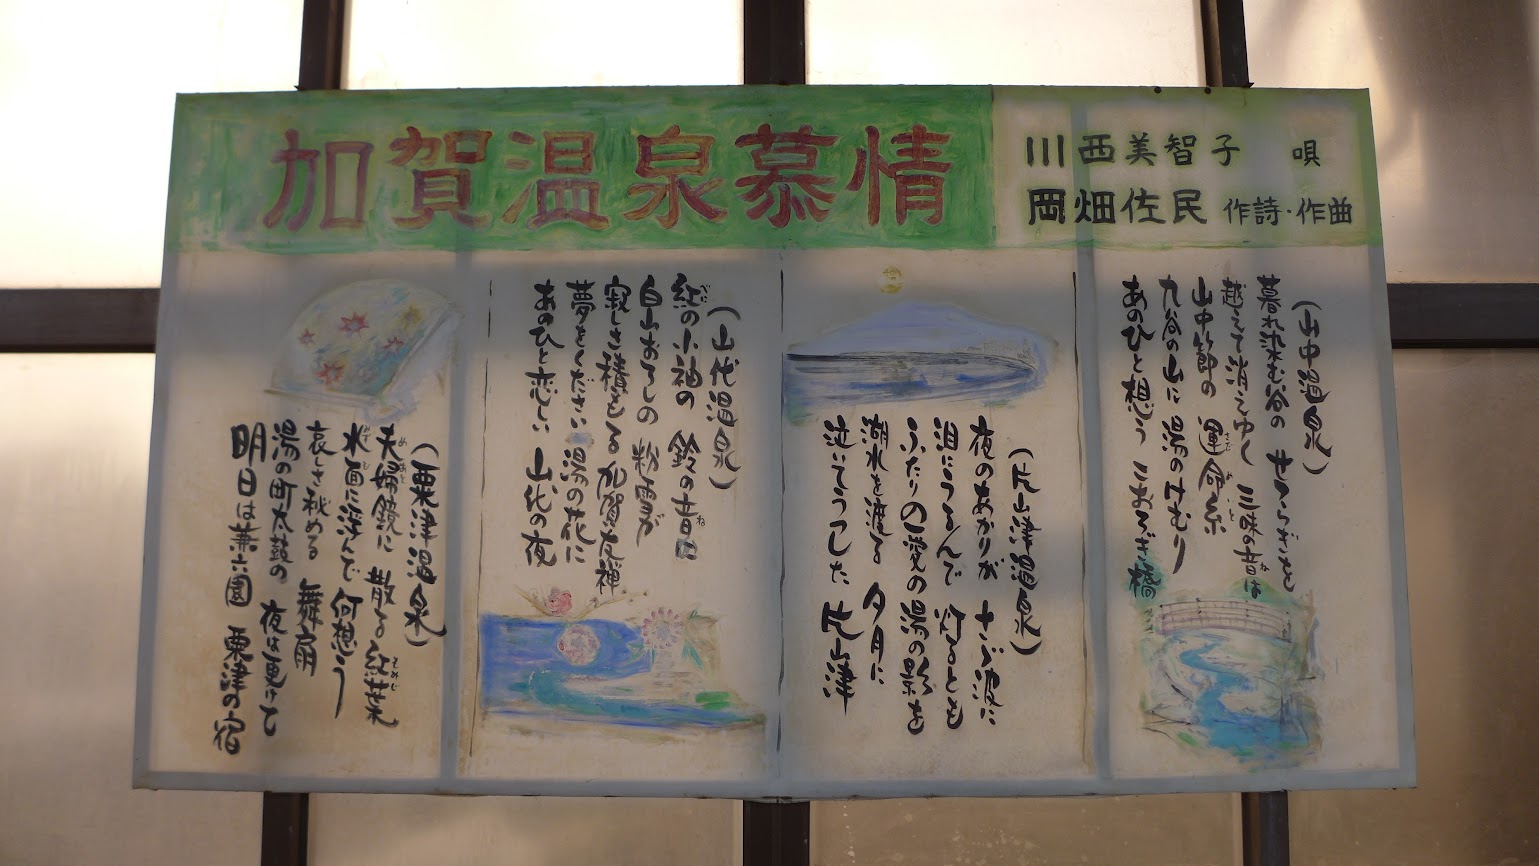 加賀温泉慕情
川西美智子 唄
岡畑佐民 作詩・作曲
(山中温泉)
暮れ染む谷の せゝらぎを
越えて消えゆく 三味の音は
山中節の 運命糸
九谷の山に 湯のけむり
あのひと想う こおろぎ橋
(片山津温泉)
夜のあかりが さゞ波に
泪にうるんで 灯るとも
ふたりの愛の 湯の影を
湖水を渡る 夕月に
泣いてうつした 片山津
(山代温泉)
紅の小袖の 鈴の音に
白山おろしの 粉雪が
寂しさ積もる 加賀友禅
夢をください 湯の花に
あのひと恋し 山代の夜
(粟津温泉)
夫婦鏡に 散る紅葉
水面に浮んで 何想う
哀しさ秘める 舞扇
湯の町太鼓の 夜は更けて
明日は兼六園 粟津の宿